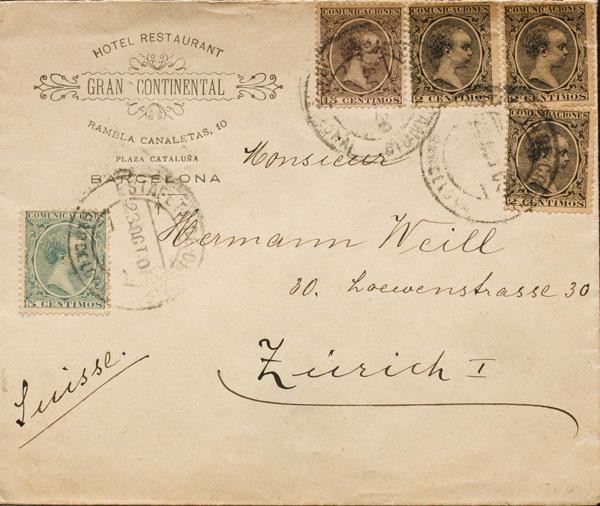 HOTEL RESTAURANT
GRAN CONTINENTAL
RAMBLA CANALETAS, 10
PLAZA CATALUÑA
BARCELONA
COMUNICACIONES
15 CENTIMOS
COMUNICACIONES
2 CENTIMOS
COMUNICACIONES
2 CENTIMOS
COMUNICACIONES
2 CENTIMOS
COMUNICACIONES
5 CENTIMOS
23 OCT 0
Monsieur
Hermann Weill
30. Loewenstrasse 30
Zürich I
Suisse.